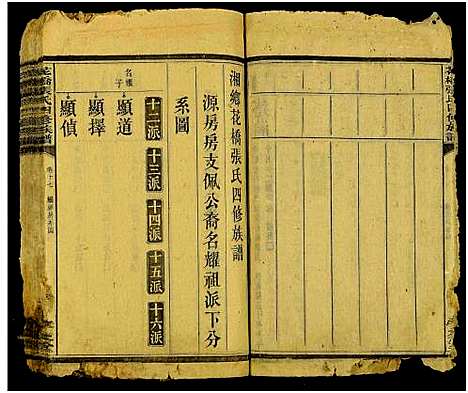 湘鄉花橋張氏四修族譜
源房房支佩公裔名耀祖派下分
系圖
十二派 十三派 十四派 十五派 十六派
名耀子
顯道
顯擇
顯偵
花橋張氏四修族譜
卷十七